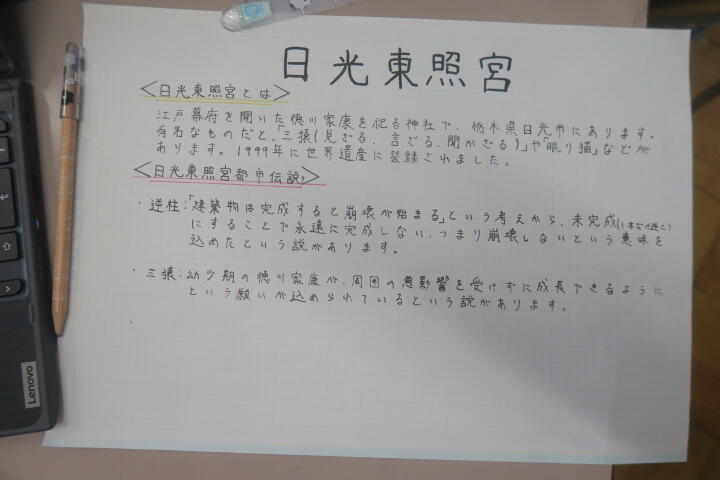 日光東照宮
<日光東照宮とは>
江戸幕府を開いた徳川家康を祀る神社で、栃木県日光市にあります。
有名なものだと、「三猿(見ざる、言ざる、聞かざる)」や「眠り猫」などが
あります。1999年に世界遺産に登録されました。
<日光東照宮都市伝説?>
・逆柱:「建築物は完成すると崩壊が始まる」という考えから、未完成(1本だけ逆さ)
にすることで永遠に完成しない、つまり崩壊しないという意味を
込めたという説があります。
・三猿:幼少期の徳川家康が、周囲の悪影響を受けずに成長できるように
という願いが込められているという説があります。
・
Lenovo